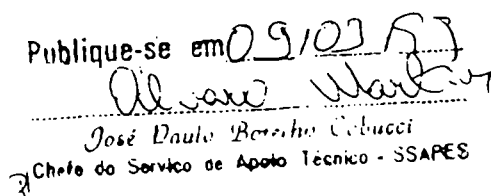 Publique-se em 09/03/97
Alvaro Martins
José Paulo Botelho Cobucci
Chefe do Serviço de Apoio Técnico - SSAPES